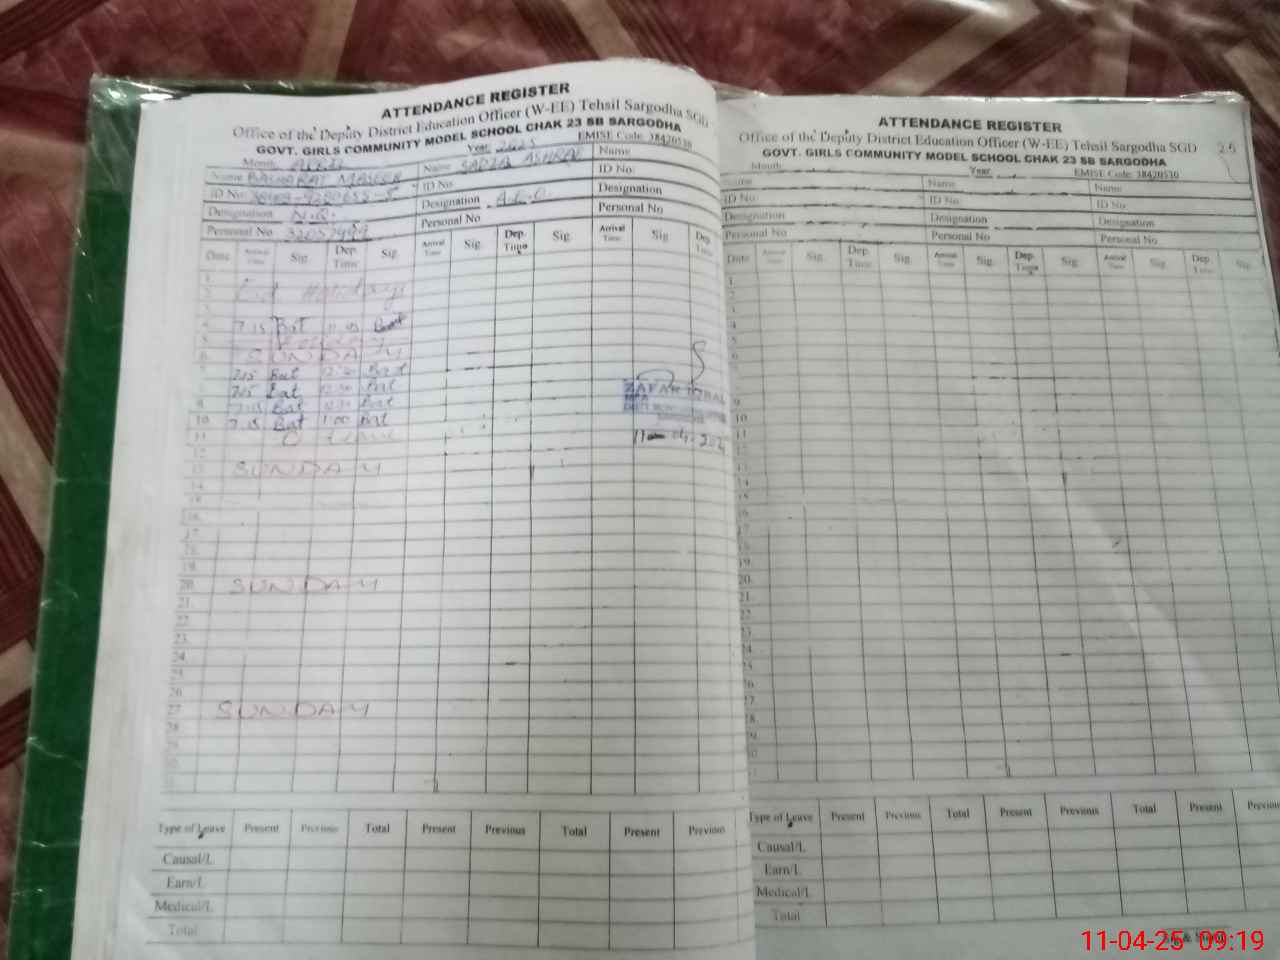 ATTENDANCE REGISTER
Office of the Deputy District Education Officer (W-EE) Tehsil Sargodha SGD
GOVT. GIRLS COMMUNITY MODEL SCHOOL CHAK 23 SB SARGODHA
Month April Year 2025 EMISE Code: 38420530
Name BASHARAT MASEEH Name SADIA ASHRAF Name
ID No. ID No. ID No.
Designation N.Q. Designation A.E.O. Designation
Personal No Personal No Personal No
Date Arrival Time Sig. Dep. Time Sig. Arrival Time Sig. Dep. Time Sig. Arrival Time Sig. Dep.
1.
2. Eid Holidays
4. 7.15 Bat 11.45 Bat
5.
6. SUNDAY
7. 7.15 Bat 12.30 Bat
8. 7.15 Bat 12.30 Bat
9. 7.15 Bat 12.30 Bat
10. 7.15 Bat 1.00 Bat
11. Leave
ZAFAR IQBAL
MEA
11-04-2025
12.
13. SUNDAY
14.
15.
16.
17.
18.
19.
20. SUNDAY
21.
22.
23.
24.
25.
26.
27. SUNDAY
28.
Type of Leave Present Previous Total Present Previous Total Present Previous
Causal/L
Earn/L
Medical/L
Total
ATTENDANCE REGISTER
Office of the Deputy District Education Officer (W-EE) Tehsil Sargodha SGD 26
GOVT. GIRLS COMMUNITY MODEL SCHOOL CHAK 23 SB SARGODHA
Month Year EMISE Code: 38420530
Name Name Name
ID No. ID No. ID No.
Designation Designation Designation
Personal No Personal No Personal No
Date Arrival Time Sig. Dep. Time Sig. Arrival Time Sig. Dep. Time Sig. Arrival Time Sig. Dep. Time Sig.
1.
2.
3.
4.
5.
6.
9.
10.
11.
12.
13.
14.
15.
16.
17.
18.
19.
20.
21.
22.
23.
24.
25.
26.
27.
28.
Type of Leave Present Previous Total Present Previous Total Present Previous
Causal/L
Earn/L
Medical/L
Total
11-04-25 09:19